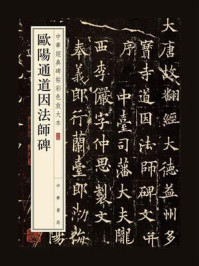 經大德益州多
寶寺道因法師碑文并
中臺司藩大夫
李儼字仲思製文
義郎行蘭臺郎渤
中華經典碑帖彩色放大本
歐陽通道因法師碑
中華書局